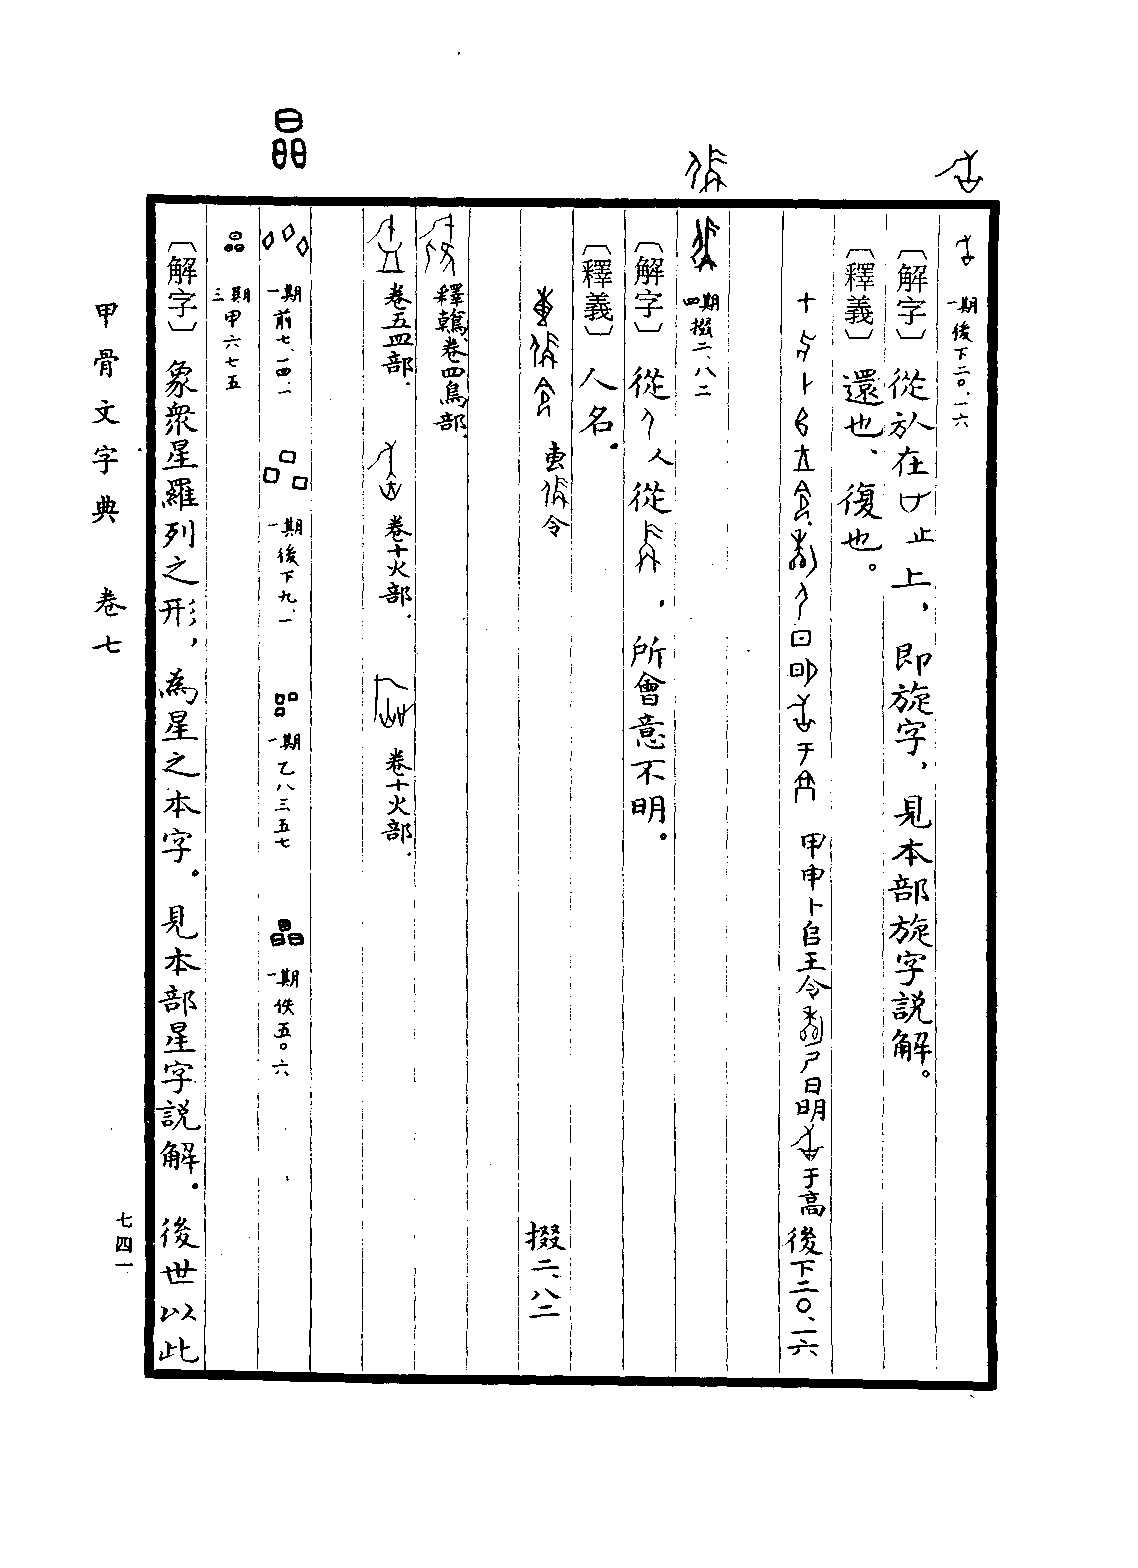 晶
一期 後下二〇.一六
〔解字〕從㫃在凵止上，即旋字，見本部旋字説解。
〔釋義〕還也、復也。
甲申卜𠂤王令 日明 于高 後下二〇.一六
四期 掇二.八二
〔解字〕從人從 ，所會意不明。
〔釋義〕人名。
叀 令 掇二.八二
釋鶾，卷四鳥部.
卷五皿部.
卷十火部.
卷十火部.
一期 前七.一四.一
一期 後下九.一
一期 乙八三五七
一期 佚五〇六
三期 甲六七五
〔解字〕象衆星羅列之形，為星之本字。見本部星字説解。後世以此
甲骨文字典 卷七
七四一